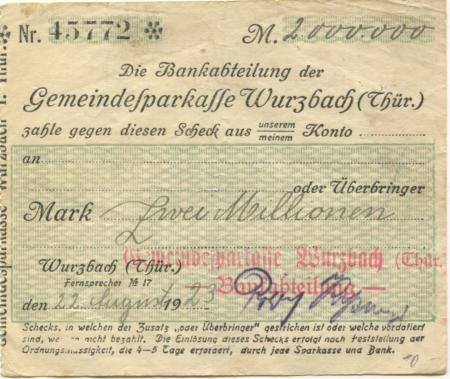 Nr. 45772 M. 2000.000
Die Bankabteilung der
Gemeindesparkasse Wurzbach (Thür.)
zahle gegen diesen Scheck aus unserem meinem Konto
an
oder Überbringer
Mark Zwei Millionen
Gemeindesparkasse Wurzbach (Thür.
Wurzbach (Thür.)
Fernsprecher № 17
Bankabteilung —
den 22 August 1923
Schecks, in welchen der Zusatz „oder Überbringer" gestrichen ist oder welche vordatiert
sind, nicht bezahlt. Die Einlösung dieses Schecks erfolgt nach Feststellung der
Ordnungsmässigkeit, die 4–5 Tage erfordert, durch jede Sparkasse und Bank.
Gemeindesparkasse Wurzbach i. Thür.